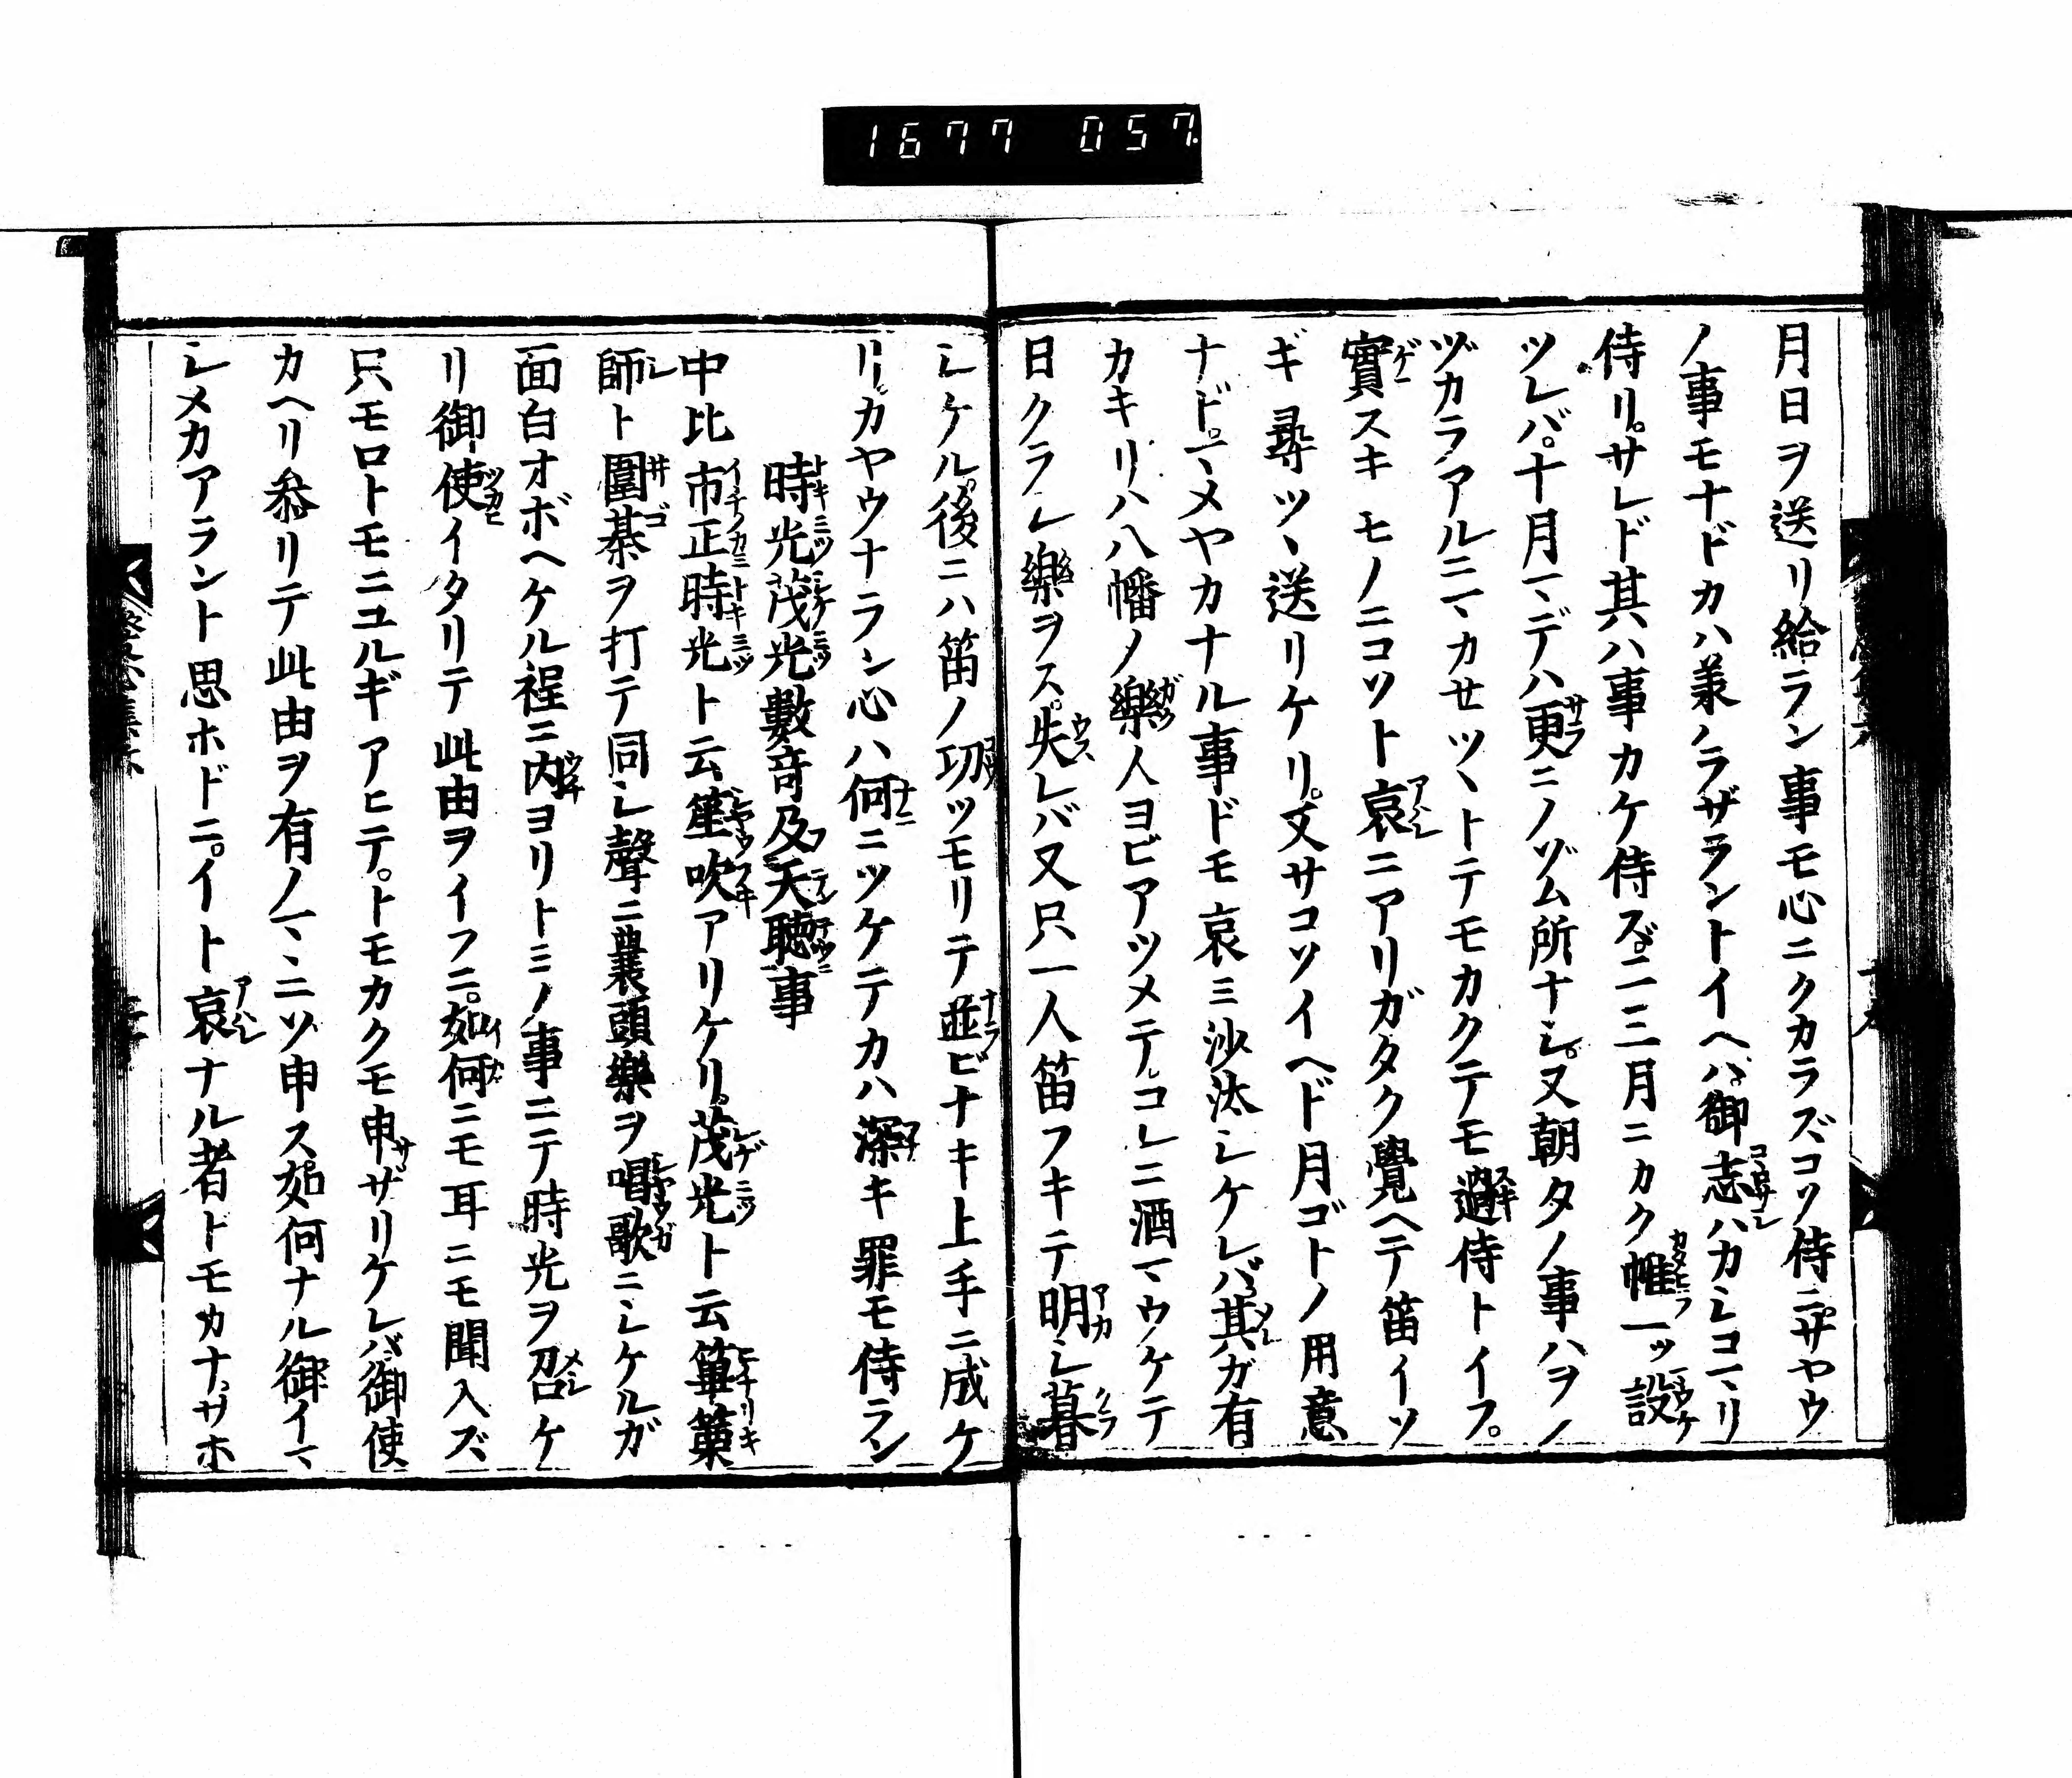 1677 057
月日ヲ送リ給ラン事モ心ニクカラズコソ侍ニ。サヤウ
ノ事モナドカハ兼ノラザラントイヘハ。御志ハカレコマリ
侍リ。サレド其ハ事カケ侍ズ。二三月ニカク帷一ッ設
ツレバ。十月マデハ更ニノゾム所ナシ。又朝夕ノ事ハヲノ
ヅカラアルニマカセツヽトテモカクテモ過侍トイフ。
實スキモノニコソト哀ニアリガタク覺ヘテ笛イソ
ギ尋ツヽ送リケリ。又サコソイヘド月ゴトノ用意
ナド。マメヤカナル事ドモ哀ミ沙汰シケレバ。其ガ有
カキリハ八幡ノ樂人ヨビアツメテ。コレニ酒マウケテ
日クラシ樂ヲス。失レバ又只一人笛フキテ明シ暮
シケル。後ニハ笛ノ功ツモリテ並ビナキ上手ニ成ケ
リ。カヤウナラン心ハ何ニツケテカハ深キ罪モ侍ラン
時光茂光數竒及天聴事
中比市正時光ト云笙吹アリケリ。茂光ト云篳篥
師ト圍棊ヲ打テ同シ聲ニ裹頭樂ヲ唱歌ニシケルガ
面白オボヘケル程ニ内ヨリトミノ事ニテ時光ヲ召ケ
リ御使イタリテ此由ヲイフニ。如何ニモ耳ニモ聞入ズ
只モロトモニユルギアヒテ。トモカクモ申サザリケレバ。御使
カヘリ叅リテ此由ヲ有ノマヽニソ申ス如何ナル御イマ
シメカアラント思ホドニ。イト哀ナル者ドモカナ。サホ